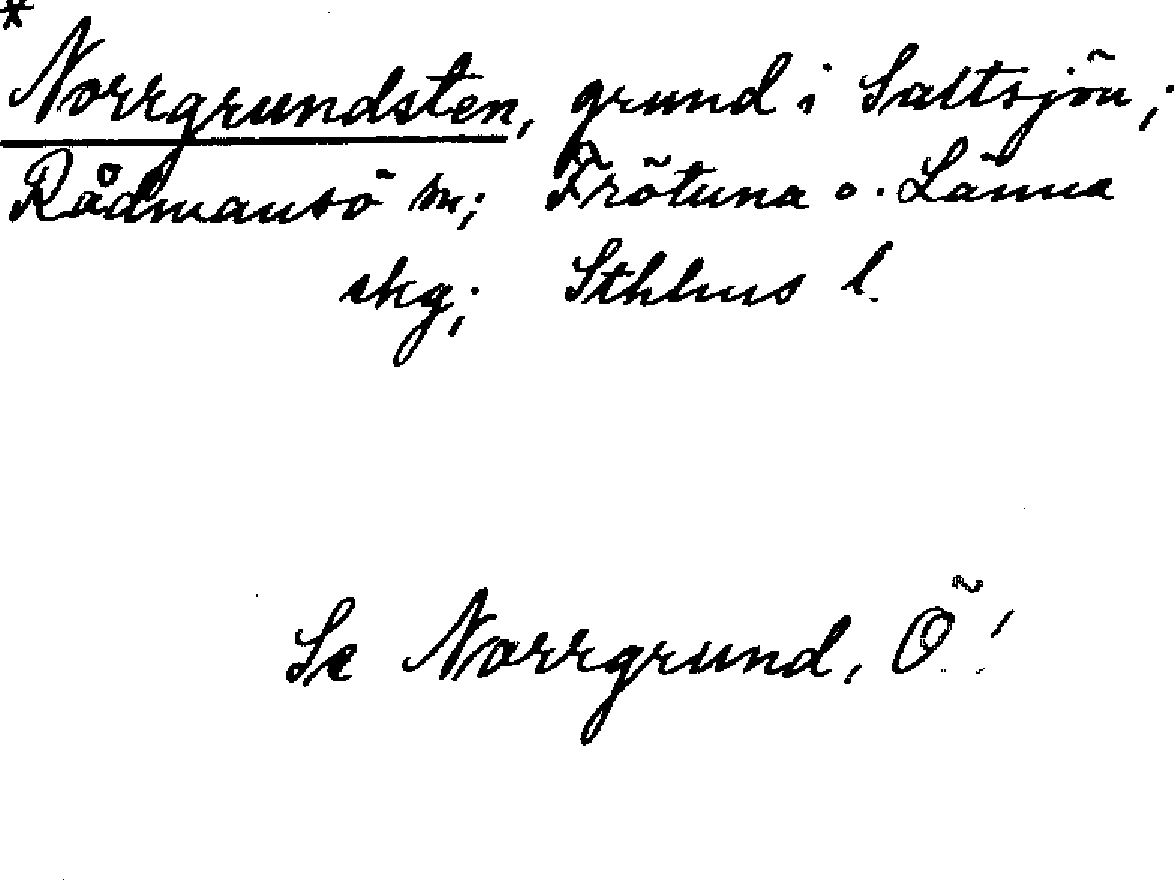 * Norrgrundsten, grund i Saltsjön;
Rådmansö sn; Frötuna o. Länna
skg; Sthlms l.
Se Norrgrund, Ö!